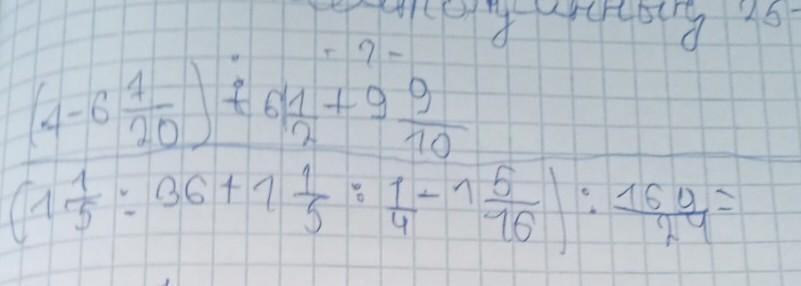 25-
- 2 -
(1-6 1/20) : 6 1/2 + 9 9/10
(1 1/5 : 36 + 1 1/5 : 1/4 - 1 5/16) : 169/24 =